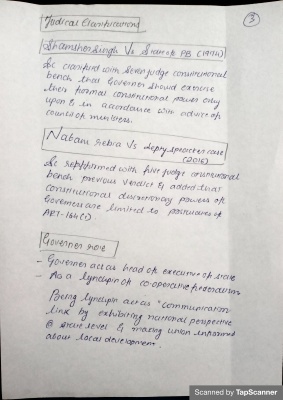 3
Judical Clarification
Shamsher Singh Vs State of PB (1974)
Sc clarified with seven judge constitutional
bench that Governer should exercise
their formal constitutional power only
upon & in accordance with advice of
council of ministers.
Nabam Rebia Vs Deputy speaker case
(2016)
Sc reaffirmed with five judge constitutional
bench previous verdict & added that
constitutional discretionary powers of
Governers are limited to postulates of
ART-164(1)
Governer role
- Governer act as head of executive of state
- As a lynchpin of co-operative federalism
Being lynchpin act as "communication
link by exhibiting national perspective
@ state level & making union informed
about local development.
Scanned by TapScanner